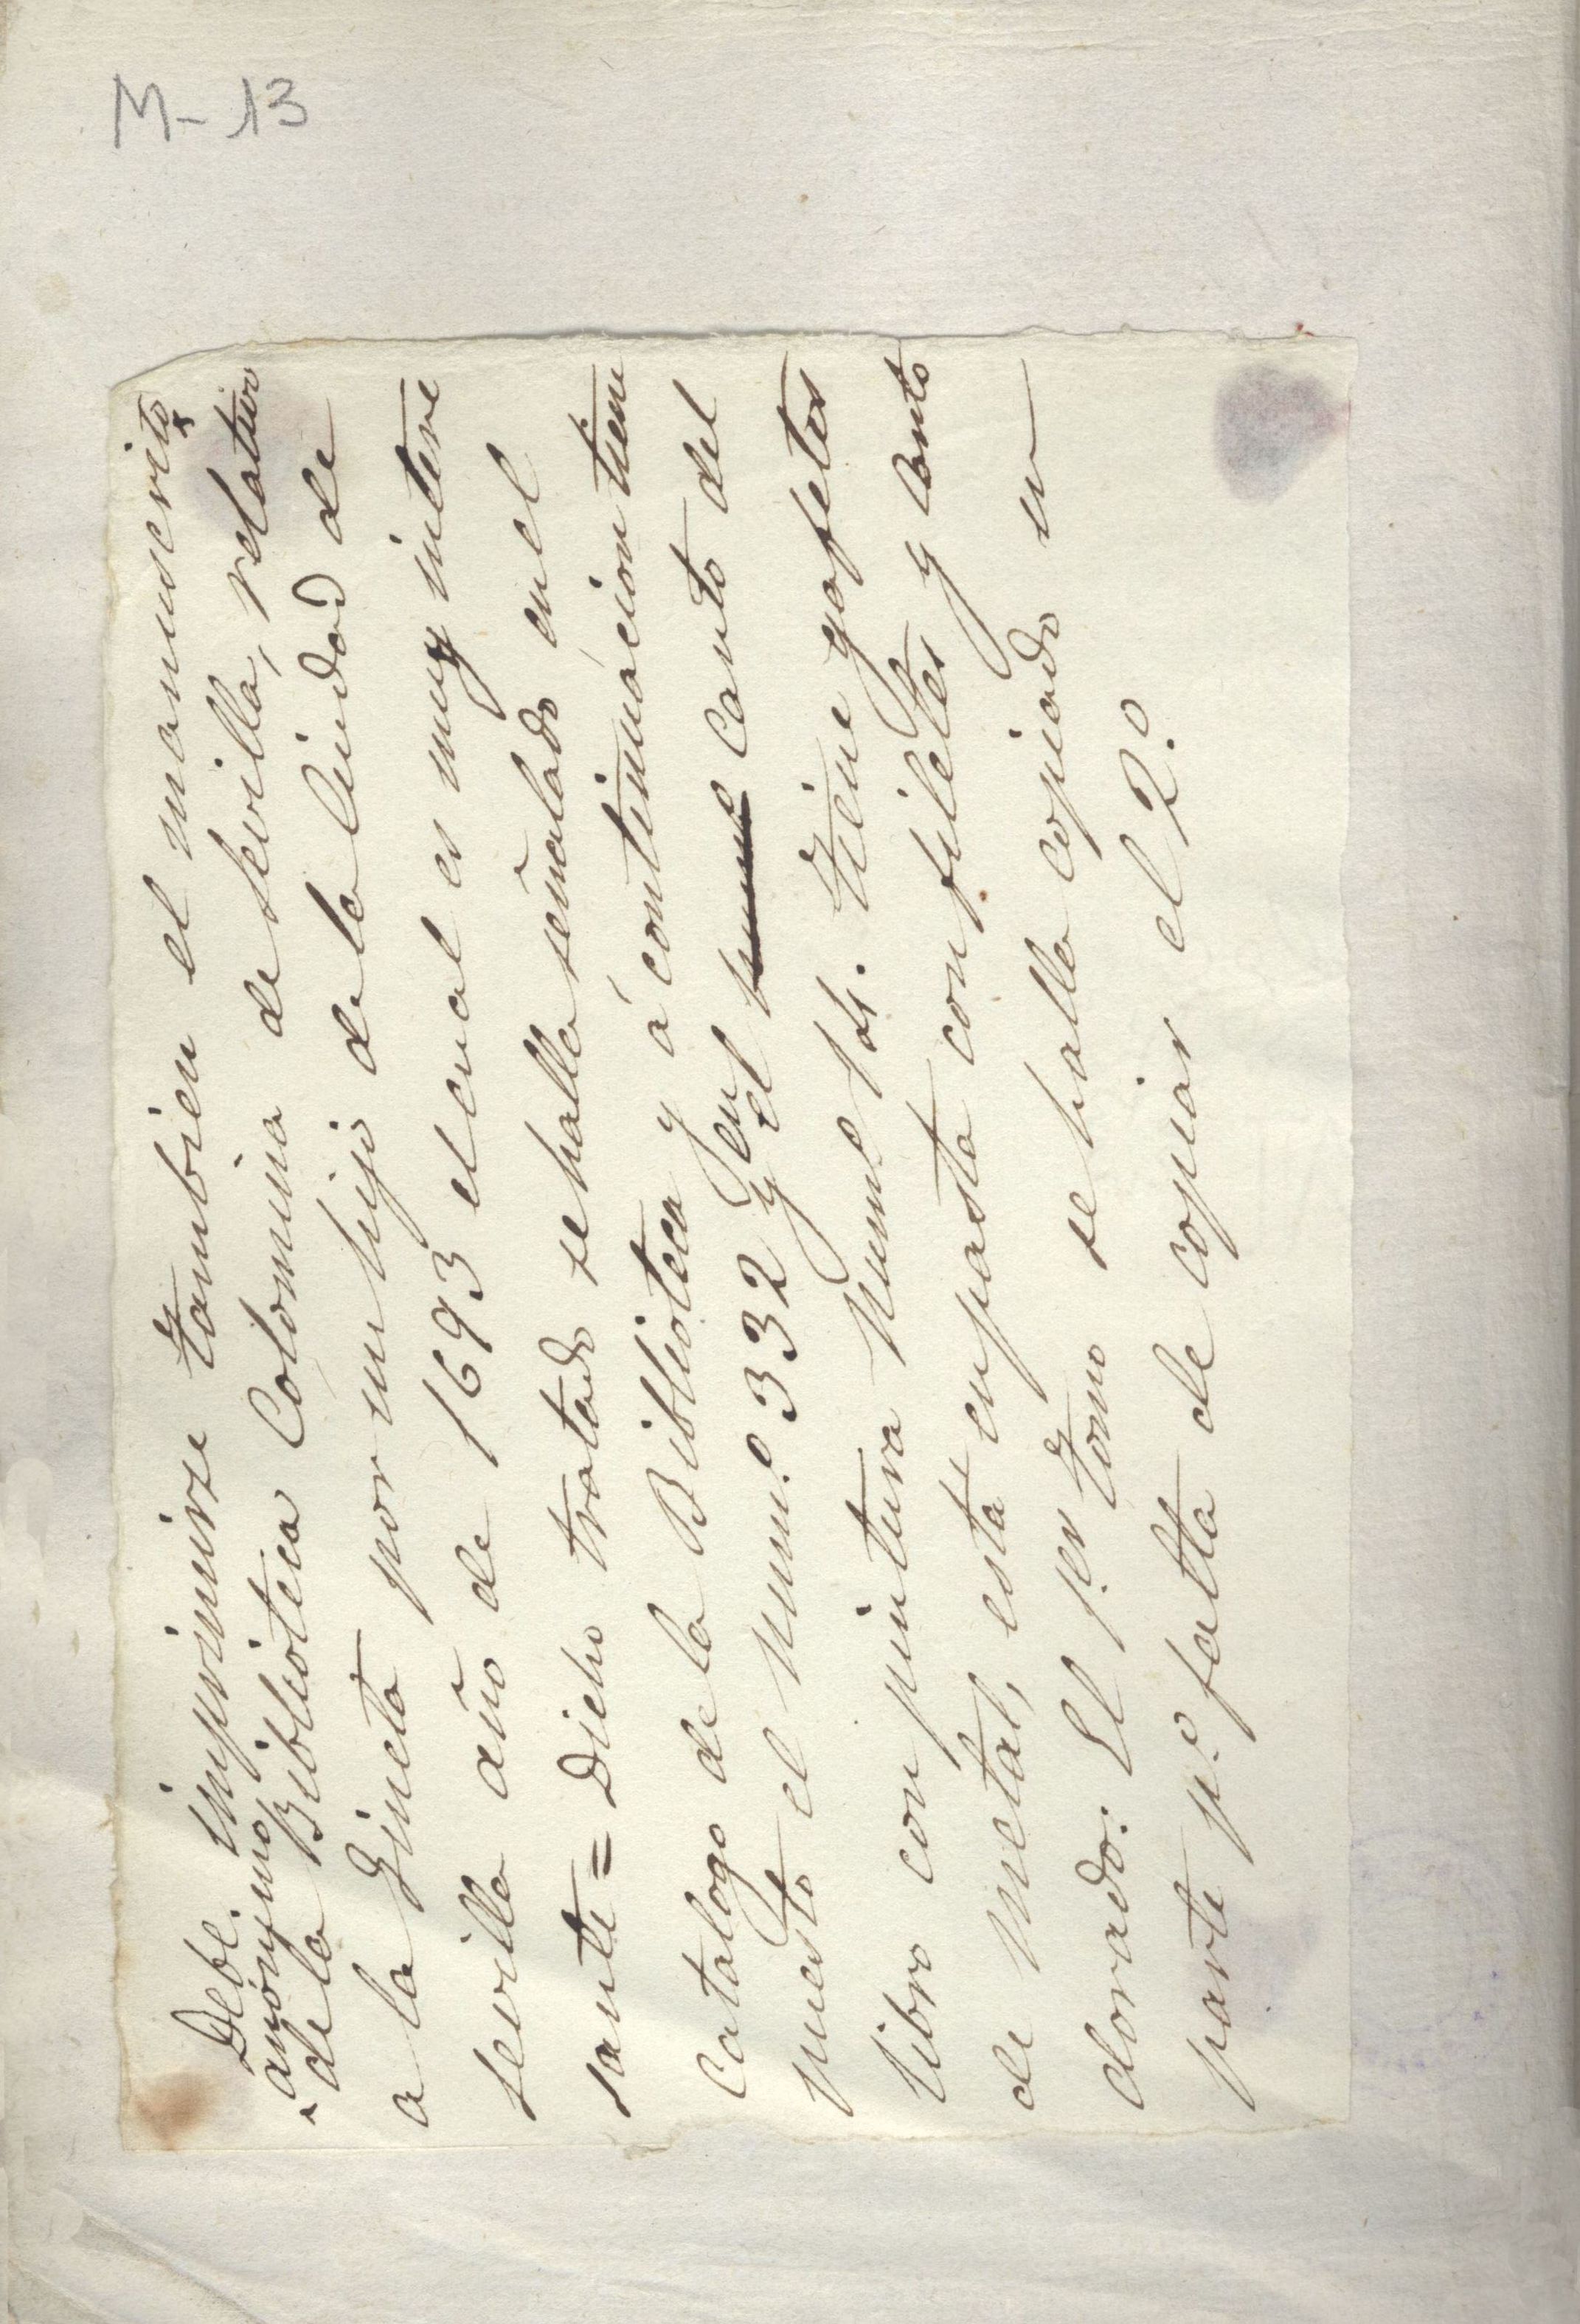 M-13
Debe imprimirse tambien el manuscrito
anónimo
de la Biblioteca Colomina de sevilla, relativo
a la Gineta por un hijo de la Ciudad de
sevilla año de 1693 el cual es muy intere
sante = Dicho tratado se halla señalado en el
Catalogo de la Biblioteca y á continuácion tiene
puesto el Num.º 332 y en el Canto del
libro con pintura Num.º 104. tiene gafetes
de metal, está en pasta con filetes y Canto
dorado: El 1.er tomo se halla copiado en
parte p.º falta de copiar el 2.º